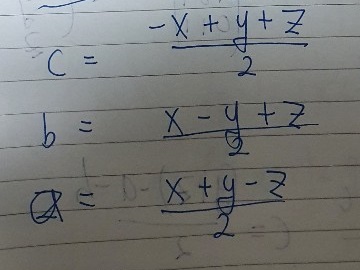 c = (-x + y + z)/2
b = (x - y + z)/2
a = (x + y - z)/2